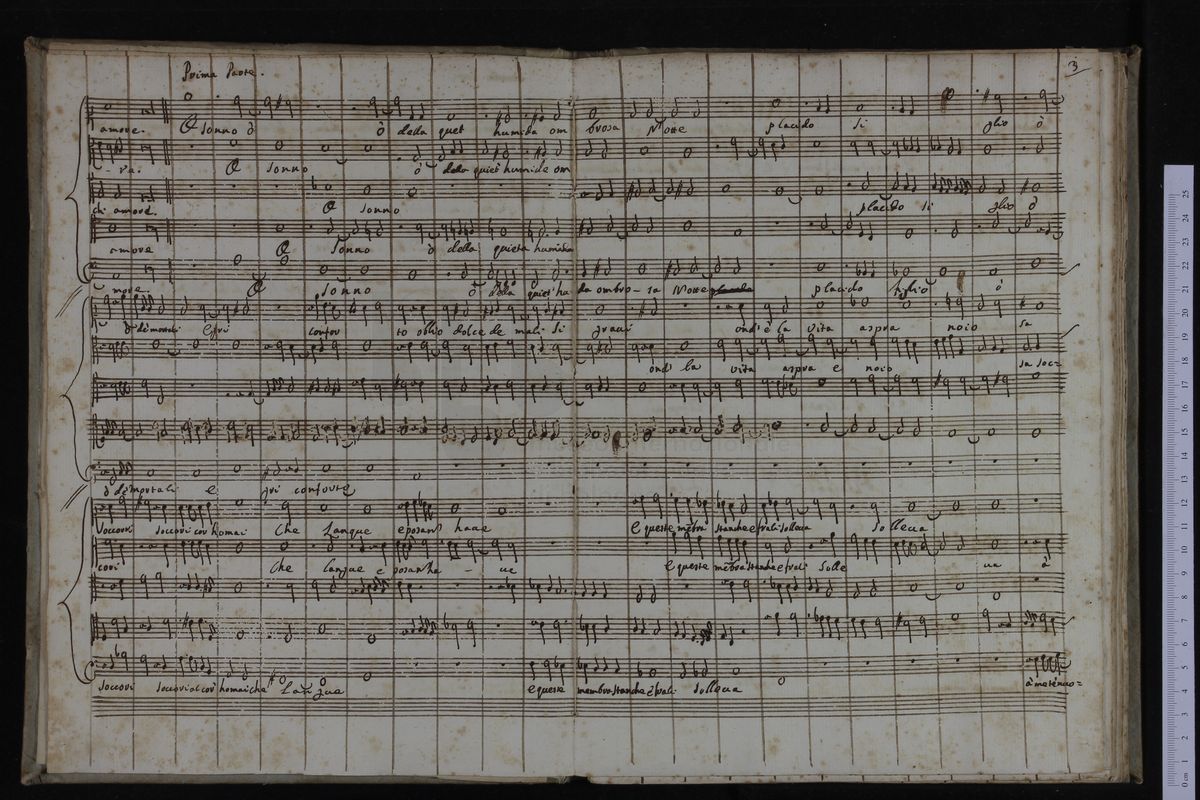 Prima Parte.
3
amore. O sonno ò ò della quet humida om brosa Notte placido si glio ò
ra. O sonno ò della quiet humida om
di amore. O sonno placido si glio ò
amore O sonno ò della quieta humida
more. O sonno ò della quiet hu da ombro-sa Notte placido figlio ò
ò de mortali egri confor to oblio dolce de mali si gravi ond'è la vita aspra noio sa
ond la vita aspra e noio sa soc=
ò de mortali e gri conforto
Soccori soccori cor homai Che Langue e posa haue E queste mebra stanche e frali solleua solleua
cori Che langue e posa ha - ue e queste mebra stanche e frali solle ua à
soccori soccori al cor homai che Langue e queste membra stanche e frali solleua à me te n'uo=